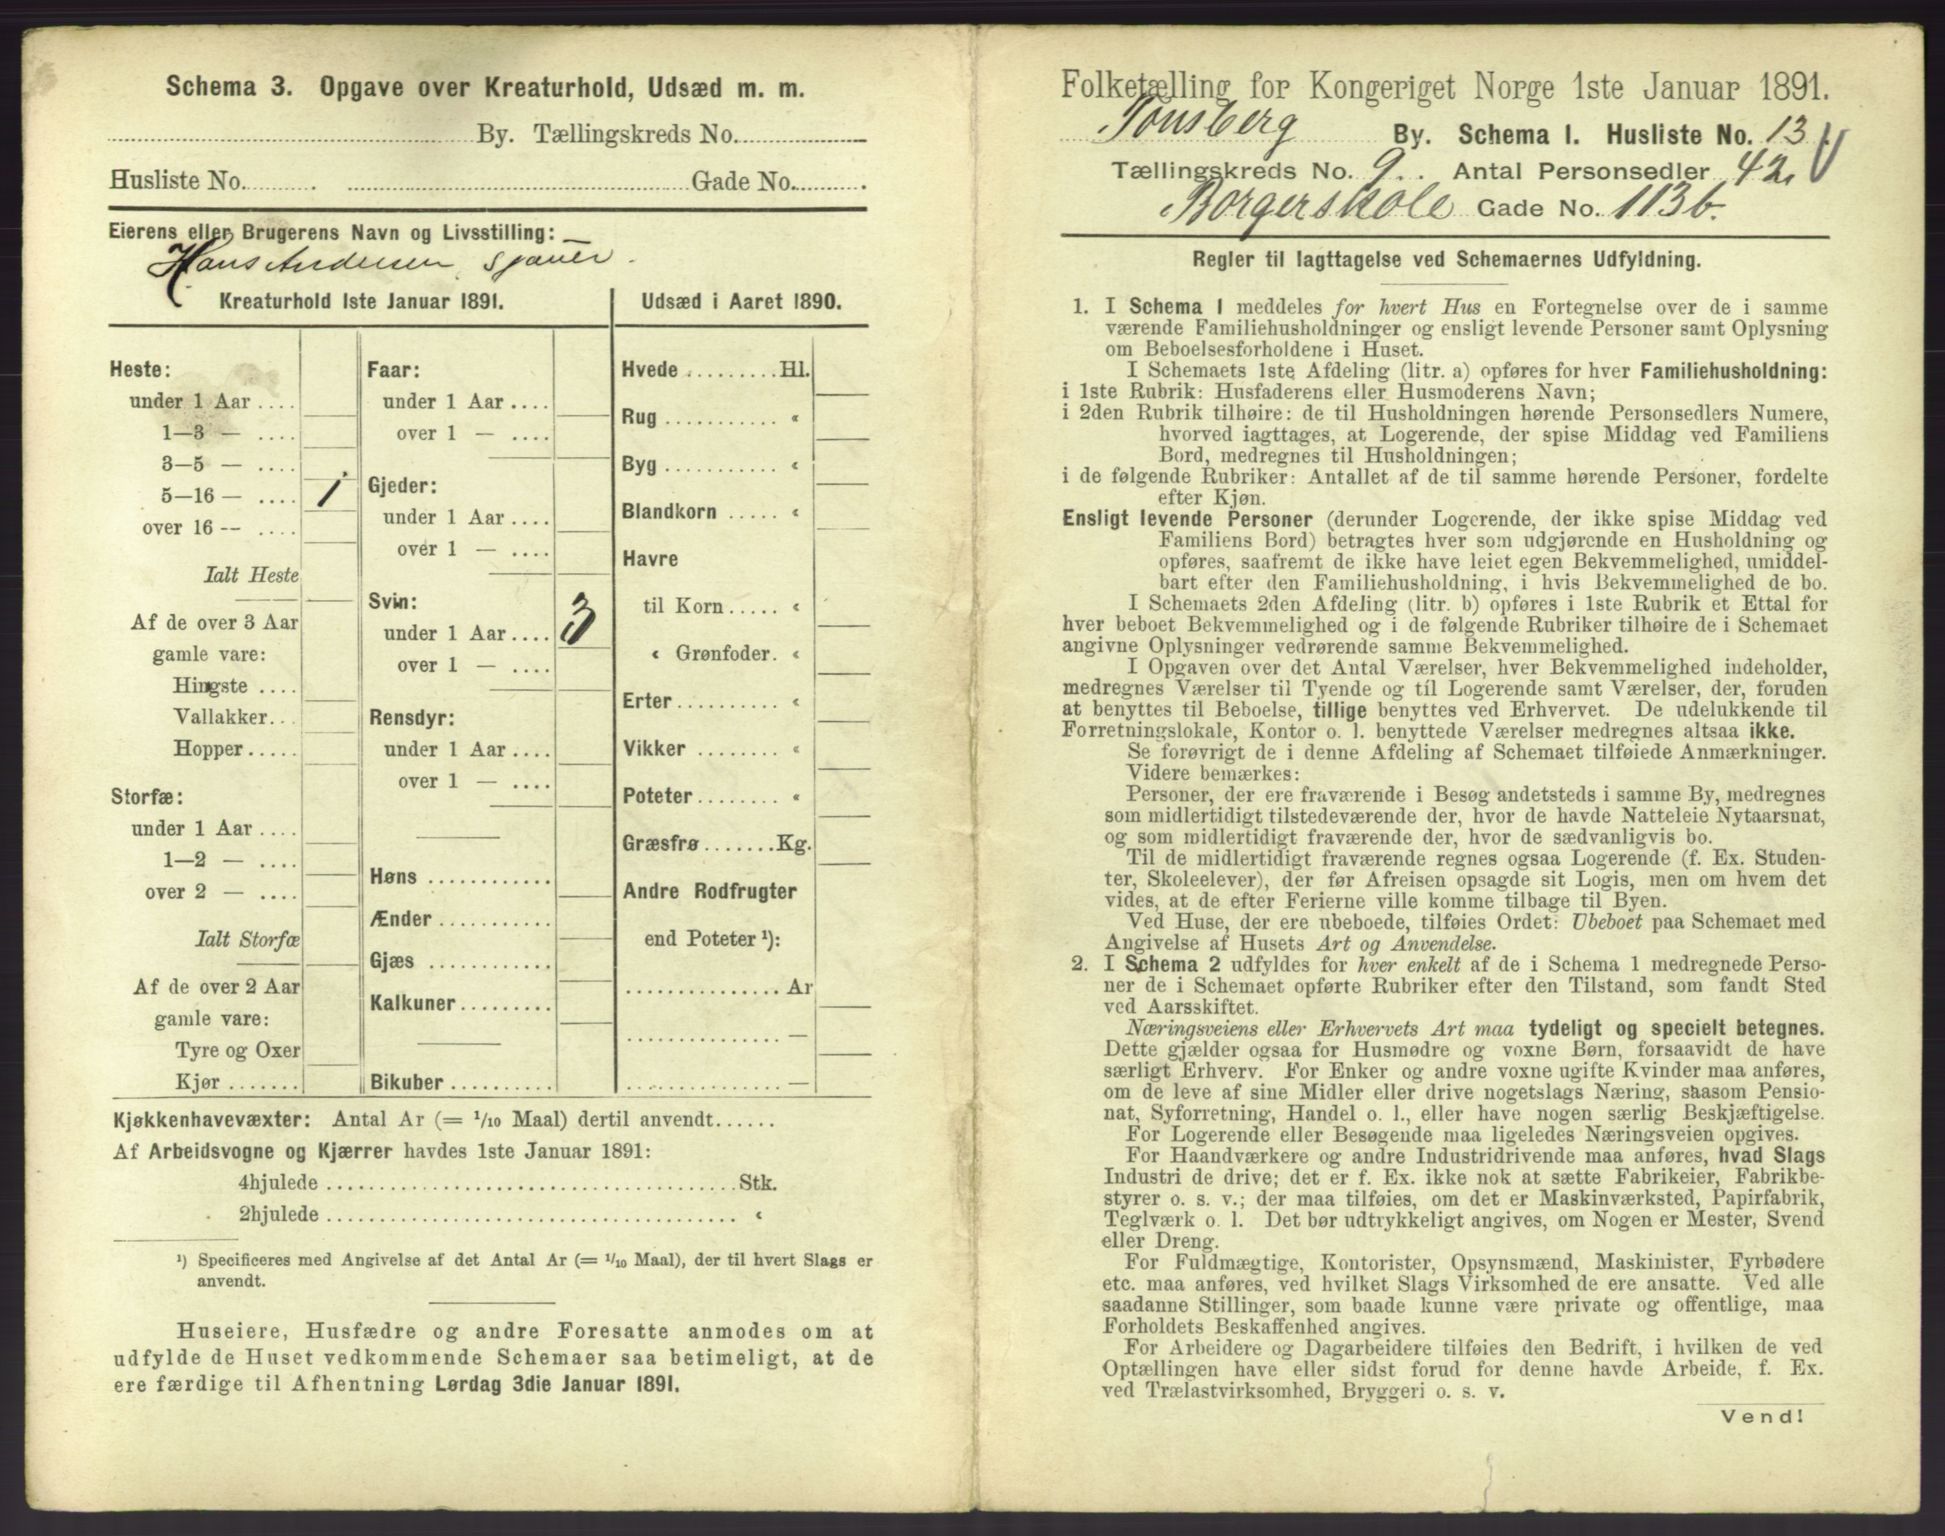 Schema 3. Opgave over Kreaturhold, Udsæd m. m.
By. Tællingskreds No.
Husliste No. Gade No.
Eierens eller Brugerens Navn og Livsstilling:
Hans Andersen, sjauer.
Kreaturhold 1ste Januar 1891.
Heste:
under 1 Aar ....
1—3 — ....
3—5 — ....
5—16 — .... 1
over 16 -- ....
Ialt Heste
Af de over 3 Aar
gamle vare:
Hingste ....
Vallakker...
Hopper.....
Storfæ:
under 1 Aar ....
1—2 — ....
over 2 — ....
Ialt Storfæ
Af de over 2 Aar
gamle vare:
Tyre og Oxer
Kjør .......
Faar:
under 1 Aar ....
over 1 — ....
Gjeder:
under 1 Aar ....
over 1 — ....
Svin:
under 1 Aar .... 3
over 1 — ....
Rensdyr:
under 1 Aar ....
over 1 — ....
Høns ............
Ænder ...........
Gjæs ............
Kalkuner.........
Bikuber ..........
Udsæd i Aaret 1890.
Hvede .........Hl.
Rug ........... «
Byg ........... «
Blandkorn ..... «
Havre
til Korn..... «
« Grønfoder. «
Erter.......... «
Vikker ........ «
Poteter........ «
Græsfrø.......Kg.
Andre Rodfrugter
end Poteter ¹):
............... Ar
............... —
............... —
Kjøkkenhavevæxter: Antal Ar (= 1/10 Maal) dertil anvendt......
Af Arbeidsvogne og Kjærrer havdes 1ste Januar 1891:
4hjulede ....................................... Stk.
2hjulede ....................................... «
¹) Specificeres med Angivelse af det Antal Ar (= 1/10 Maal), der til hvert Slags er
anvendt.
Huseiere, Husfædre og andre Foresatte anmodes om at
udfylde de Huset vedkommende Schemaer saa betimeligt, at de
ere færdige til Afhentning Lørdag 3die Januar 1891.
Folketælling for Kongeriget Norge 1ste Januar 1891.
Tønsberg By. Schema I. Husliste No. 13
Tællingskreds No. 9. Antal Personsedler 42
Borgerskole Gade No. 113b.
Regler til Iagttagelse ved Schemaernes Udfyldning.
1. I Schema 1 meddeles for hvert Hus en Fortegnelse over de i samme
værende Familiehusholdninger og ensligt levende Personer samt Oplysning
om Beboelsesforholdene i Huset.
I Schemaets 1ste Afdeling (litr. a) opføres for hver Familiehusholdning:
i 1ste Rubrik: Husfaderens eller Husmoderens Navn;
i 2den Rubrik tilhøire: de til Husholdningen hørende Personsedlers Numere,
hvorved iagttages, at Logerende, der spise Middag ved Familiens
Bord, medregnes til Husholdningen;
i de følgende Rubriker: Antallet af de til samme hørende Personer, fordelte
efter Kjøn.
Ensligt levende Personer (derunder Logerende, der ikke spise Middag ved
Familiens Bord) betragtes hver som udgjørende en Husholdning og
opføres, saafremt de ikke have leiet egen Bekvemmelighed, umiddel-
bart efter den Familiehusholdning, i hvis Bekvemmelighed de bo.
I Schemaets 2den Afdeling (litr. b) opføres i 1ste Rubrik et Ettal for
hver beboet Bekvemmelighed og i de følgende Rubriker tilhøire de i Schemaet
angivne Oplysninger vedrørende samme Bekvemmelighed.
I Opgaven over det Antal Værelser, hver Bekvemmelighed indeholder,
medregnes Værelser til Tyende og til Logerende samt Værelser, der, foruden
at benyttes til Beboelse, tillige benyttes ved Erhvervet. De udelukkende til
Forretningslokale, Kontor o. l. benyttede Værelser medregnes altsaa ikke.
Se forøvrigt de i denne Afdeling af Schemaet tilføiede Anmærkninger.
Videre bemærkes:
Personer, der ere fraværende i Besøg andetsteds i samme By, medregnes
som midlertidigt tilstedeværende der, hvor de havde Natteleie Nytaarsnat,
og som midlertidigt fraværende der, hvor de sædvanligvis bo.
Til de midlertidigt fraværende regnes ogsaa Logerende (f. Ex. Studen-
ter, Skoleelever), der før Afreisen opsagde sit Logis, men om hvem det
vides, at de efter Ferierne ville komme tilbage til Byen.
Ved Huse, der ere ubeboede, tilføies Ordet: Ubeboet paa Schemaet med
Angivelse af Husets Art og Anvendelse.
2. I Schema 2 udfyldes for hver enkelt af de i Schema 1 medregnede Perso-
ner de i Schemaet opførte Rubriker efter den Tilstand, som fandt Sted
ved Aarsskiftet.
Næringsveiens eller Erhvervets Art maa tydeligt og specielt betegnes.
Dette gjælder ogsaa for Husmødre og voxne Børn, forsaavidt de have
særligt Erhverv. For Enker og andre voxne ugifte Kvinder maa anføres,
om de leve af sine Midler eller drive nogetslags Næring, saasom Pensio-
nat, Syforretning, Handel o. l., eller have nogen særlig Beskjæftigelse.
For Logerende eller Besøgende maa ligeledes Næringsveien opgives.
For Haandværkere og andre Industridrivende maa anføres, hvad Slags
Industri de drive; det er f. Ex. ikke nok at sætte Fabrikeier, Fabrikbe-
styrer o. s. v.; der maa tilføies, om det er Maskinværksted, Papirfabrik,
Teglværk o. l. Det bør udtrykkeligt angives, om Nogen er Mester, Svend
eller Dreng.
For Fuldmægtige, Kontorister, Opsynsmænd, Maskinister, Fyrbødere
etc. maa anføres, ved hvilket Slags Virksomhed de ere ansatte. Ved alle
saadanne Stillinger, som baade kunne være private og offentlige, maa
Forholdets Beskaffenhed angives.
For Arbeidere og Dagarbeidere tilføies den Bedrift, i hvilken de ved
Optællingen have eller sidst forud for denne havde Arbeide, f. Ex.
ved Trælastvirksomhed, Bryggeri o. s. v.
Vend!